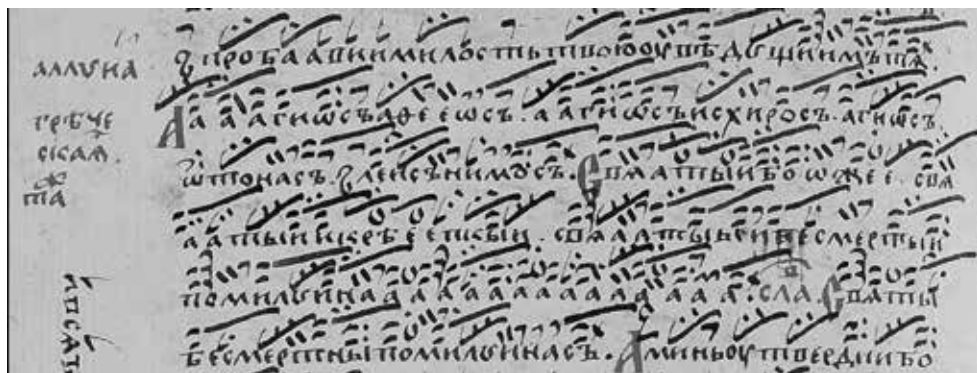 аллꙋиа
грѣче
скаꙗ
та
проба ави милость твою оувѣдꙋщиимъ тѧ
Аа а агиѡсъ ѳе еѡсъ. а агиѡсъ исхиросъ. агиѡсъ
ѡтонасъ. елеисънимосъ. Свѧатыи бо ожее. свѧ
а атыи и крѣе епкыи. свѧ а атыи бесмертыи
помилꙋи на а а а а а а а а а а а а. сла Свѧты
бесмертны помилꙋи насъ. Аминь оутверди бо